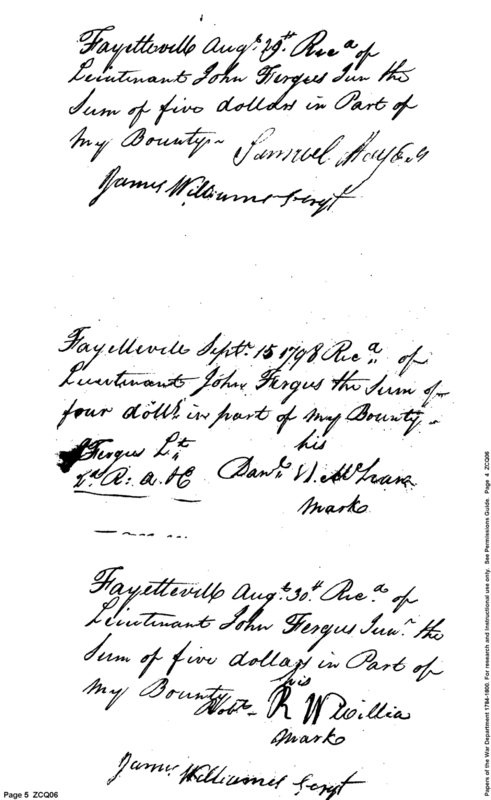 Fayetteville Augt. 29th Recd of
Lieutenant John Fergus Jun the
Sum of five dollars in Part of
my Bounty
Samuel Hays
James Williams Sergt
Fayetteville Septr. 15 1798 Recd. of
Lieutenant John Fergus the Sum of
four dolls. in part of my Bounty
his
J Fergus Lt.
Danl. McLean
2d. R: a. &E
mark
Fayetteville Augt. 30th Recd. of
Lieutenant John Fergus Junr. the
Sum of five dollars in Part of
my Bounty
his
Robt. R W Willia
mark
James Williams Sergt
Page 5 ZCQ06
Papers of the War Department 1784-1800. For research and instructional use only. See Permissions Guide. Page 4 ZCQ06